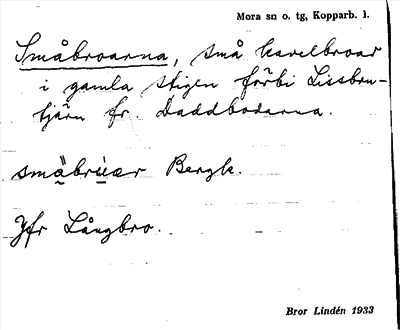 Mora sn o. tg, Kopparb. l.
Småbroarna, små kavelbroar
i gamla stigen förbi Lissbru-
tjärn fr. Daddbodarna.
smäbrúær Bergk.
Jfr Långbro.
Bror Lindén 1933